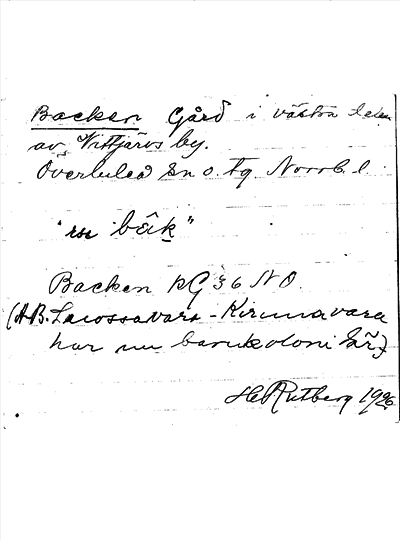 Backen Gård i västra delen
av Vittjärvs by.
Överluleå Sn o. tg. Norrb. l.
"  bâk̲"
Backen RG 36 NO.
(A.B. Luossavara - Kirunavara
har nu barnkoloni här)
H Rutberg 1926